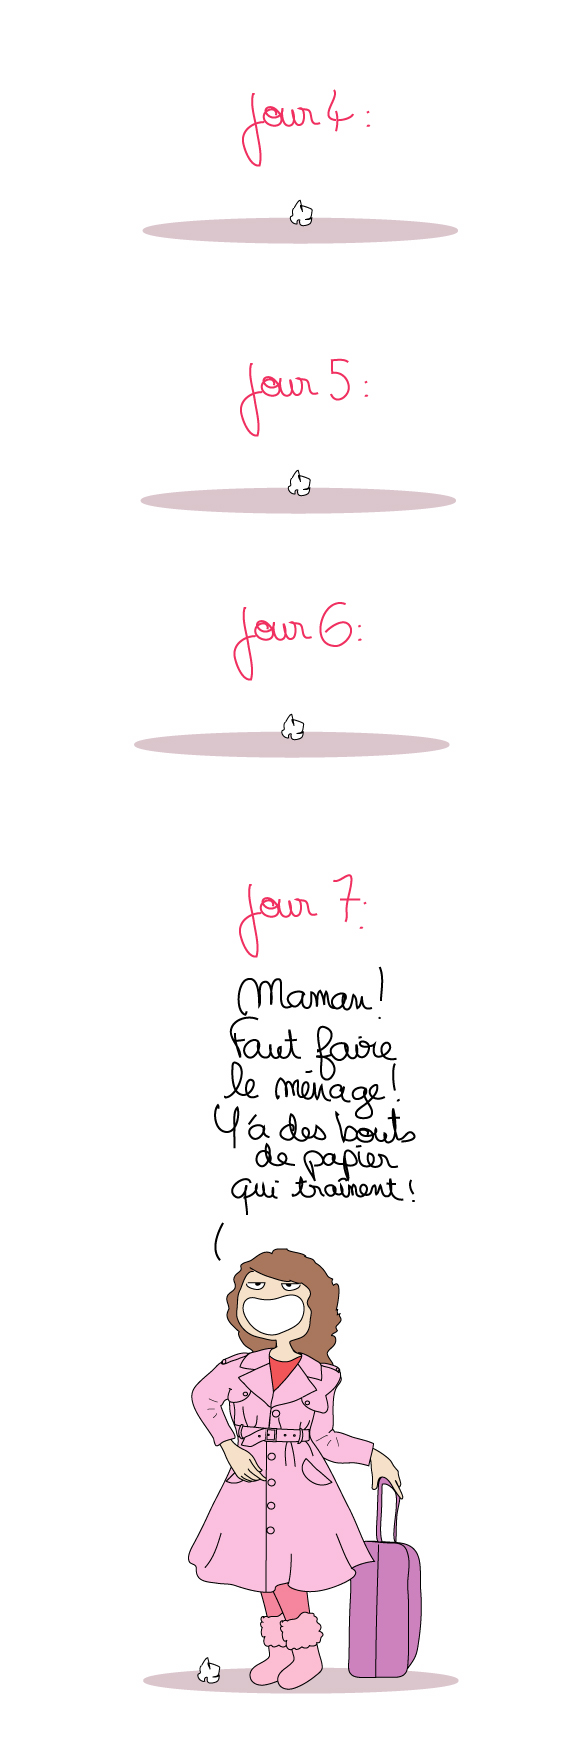 Jour 4 :
Jour 5 :
Jour 6 :
Jour 7 :
Maman !
Faut faire
le ménage !
Y'a des bouts
de papier
qui traînent !